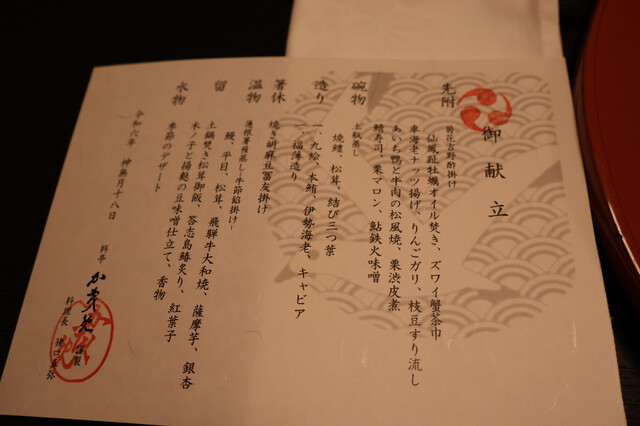 御献立
先附
菊花吉野酢掛け
仙鳳趾牡蠣オイル焚き、ズワイ蟹茶巾
車海老ナッツ揚げ、りんごガリ、枝豆すり流し
あいち鴨と牛肉の松風焼、栗渋皮煮
鯖寿司、栗マロン、鮎鉄火味噌
碗物
土瓶蒸し
焼鱧、松茸、結び三つ葉
造り
一、九絵、本鮪、伊勢海老、キャビア
一、福薄造り
箸休
焼き胡麻豆冨友掛け
温物
蓮根薯蕷蒸し-牛節餡掛け-
鰻、平目、松茸、飛騨牛大和焼、薩摩芋、銀杏
留
土鍋焚き松茸御飯、答志島鰆炙り、紅葉子
木ノ子と揚麩の豆味噌仕立て、香物
水物
季節のデザート
令和六年 神無月十八日
料亭
謹製
料理長